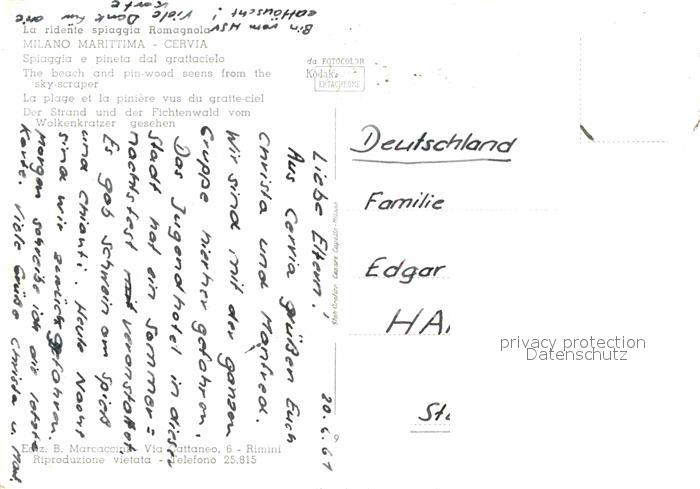 La ridente spiaggia Romagnola
MILANO MARITTIMA - CERVIA
Spiaggia e pineta dal grattacielo
The beach and pin-wood seens from the
sky-scraper
La plage et la pinière vus du gratte-ciel
Der Strand und der Fichtenwald vom
Wolkenkratzer gesehen
da FOTOCOLOR
Kodak
EKTACHROME
20.6.61
Liebe Eltern!
Aus Cervia grüßen Euch
Christa und Manfred.
Wir sind mit der ganzen
Gruppe hierher gefahren.
Das Jugendhotel in dieser
Stadt hat ein Sommer=
nachtsfest veranstaltet,
Es gab Schwein am Spieß
und Chianti. Heute Nacht
sind wir zurückgefahren.
Morgen schreibe ich die letzte
Karte. Viele Grüße Christa u. Man.
Bin vom HSV
enttäuscht! Viele Dank für die
Karte
Deutschland
Familie
Edgar
HA
privacy protection
Datenschutz
St
9
Ediz. B. Marcaccini - Via Cattaneo, 6 - Rimini
Riproduzione vietata - Telefono 25.815